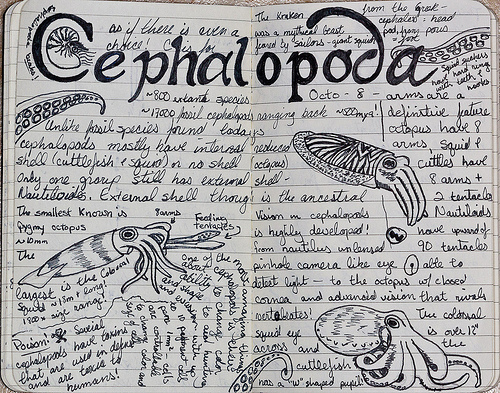 as if there is even a
choice! C is for
Cephalopoda
The Kraken
was a mythical beast
feared by sailors - giant squid
from the Greek -
cephalo : head
pod, from pous
- foot
Squid suckers
have hard ring
with teeth &
hooks
~800 extant species
~17000 fossil cephalopods
Unlike fossil species found today
cephalopods mostly have internal
shell (cuttlefish & squid) or no shell
Only one group still has external
Nautiloids. External shell though
The smallest known is
pygmy octopus
~10mm
8 arms
Feeding
tentacles
The
largest is the Colossal
Squid ~13m + long!
1300x size range!
Poison!
Special
cephalopods have toxins
that are used in defense
and are toxic to
humans!
One of the most amazing things
about cephalopods is their
ability to change color
and shape
ranging back ~500mya!
reduced
(octopus)
shell -
is the ancestral
Octo - 8 - arms are a
definitive feature
octopus have 8
arms, squid &
cuttles have
8 arms +
2 tentacles
Nautiloids
have upward of
90 tentacles
Vision in cephalopods
is highly developed!
from nautilus unlensed
pinhole camera like eye able to
detect light - to the octopus w/ closed
cornea and advanced vision that rivals
vertebrates!
The colossal
squid eye is over 12"
across and the
cuttlefish
has a "W" shaped pupil!